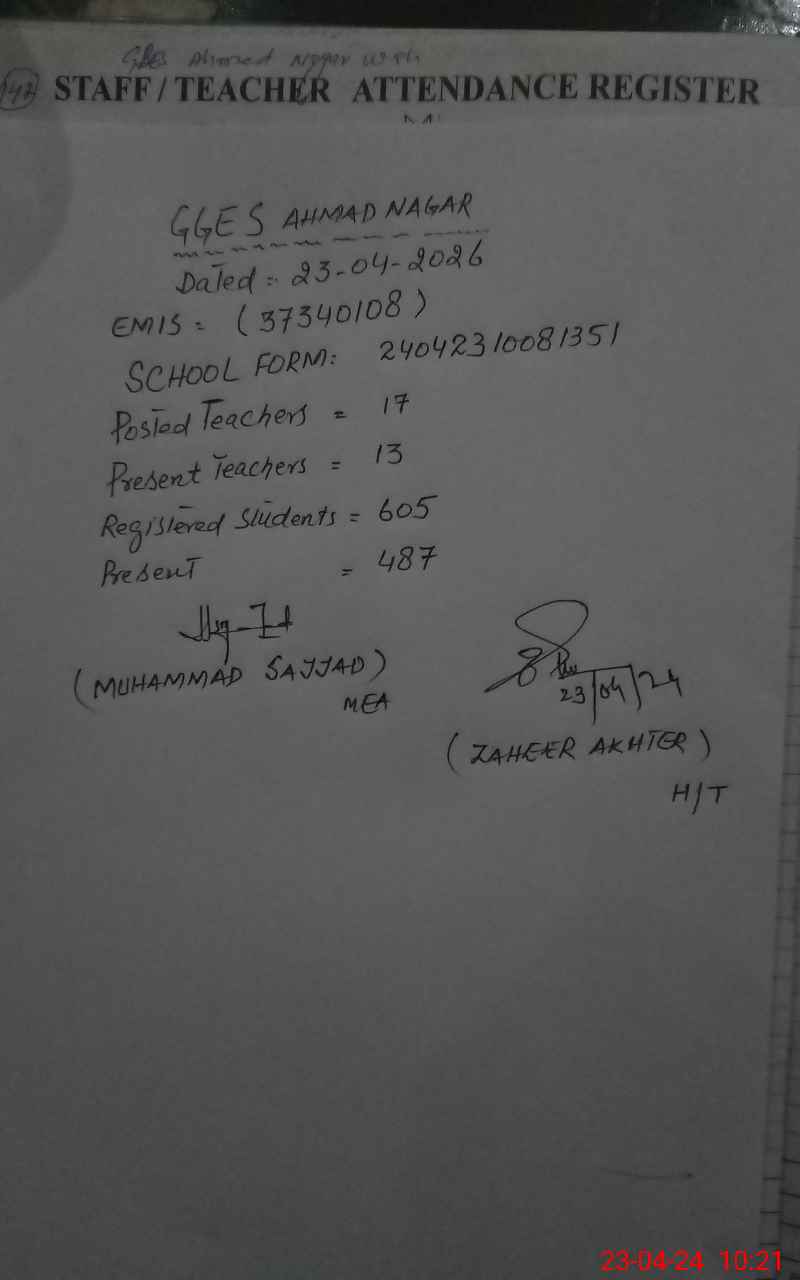 GGES Ahmad Nagar
147 STAFF / TEACHER ATTENDANCE REGISTER
GGES AHMAD NAGAR
Dated :- 23-04-2026
EMIS = (37340108)
SCHOOL FORM: 24042310081351
Posted Teachers = 17
Present Teachers = 13
Registered Students = 605
Present = 487
(MUHAMMAD SAJJAD)
MEA
23/04/24
(ZAHEER AKHTER)
H/T
23-04-24 10:21